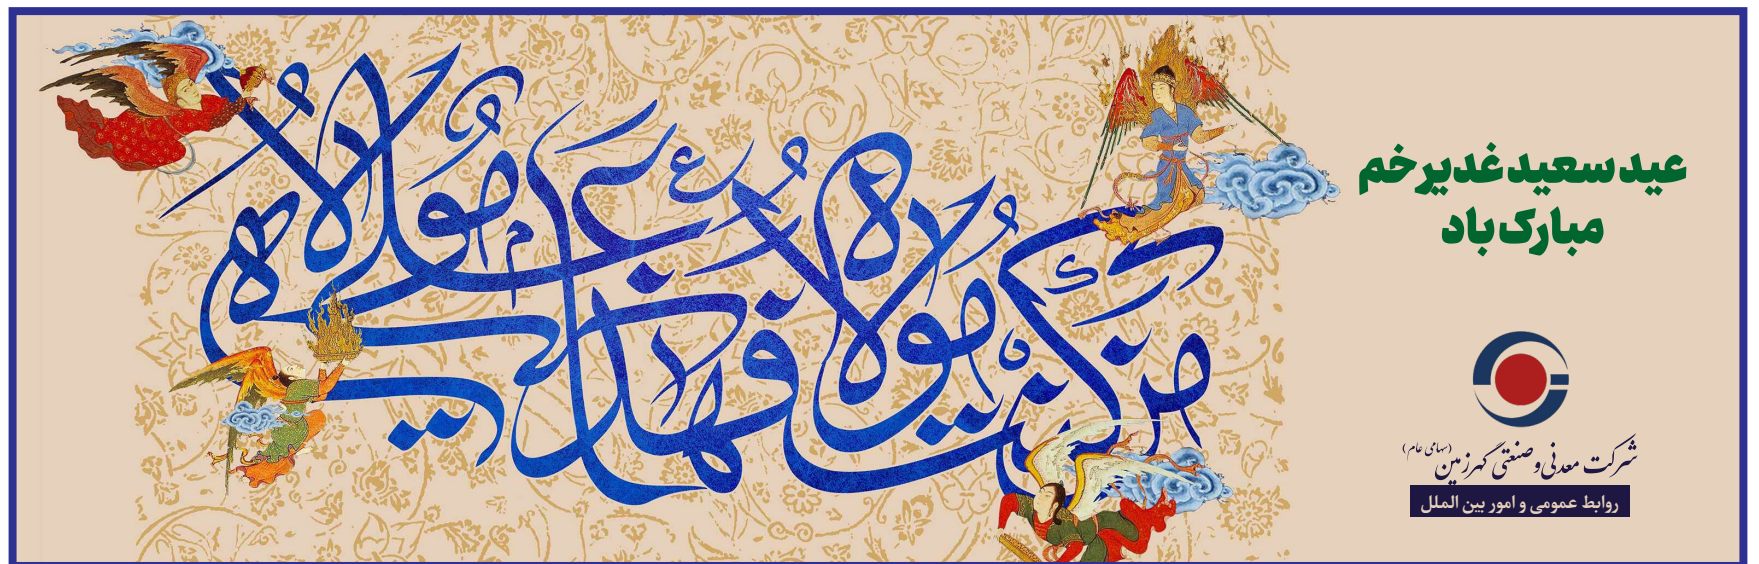 من كنت مولاه فهذا علي مولاه
عید سعید غدیر خم
مبارک باد
شرکت معدنی و صنعتی گهرزمین (سهامی عام)
روابط عمومی و امور بین الملل